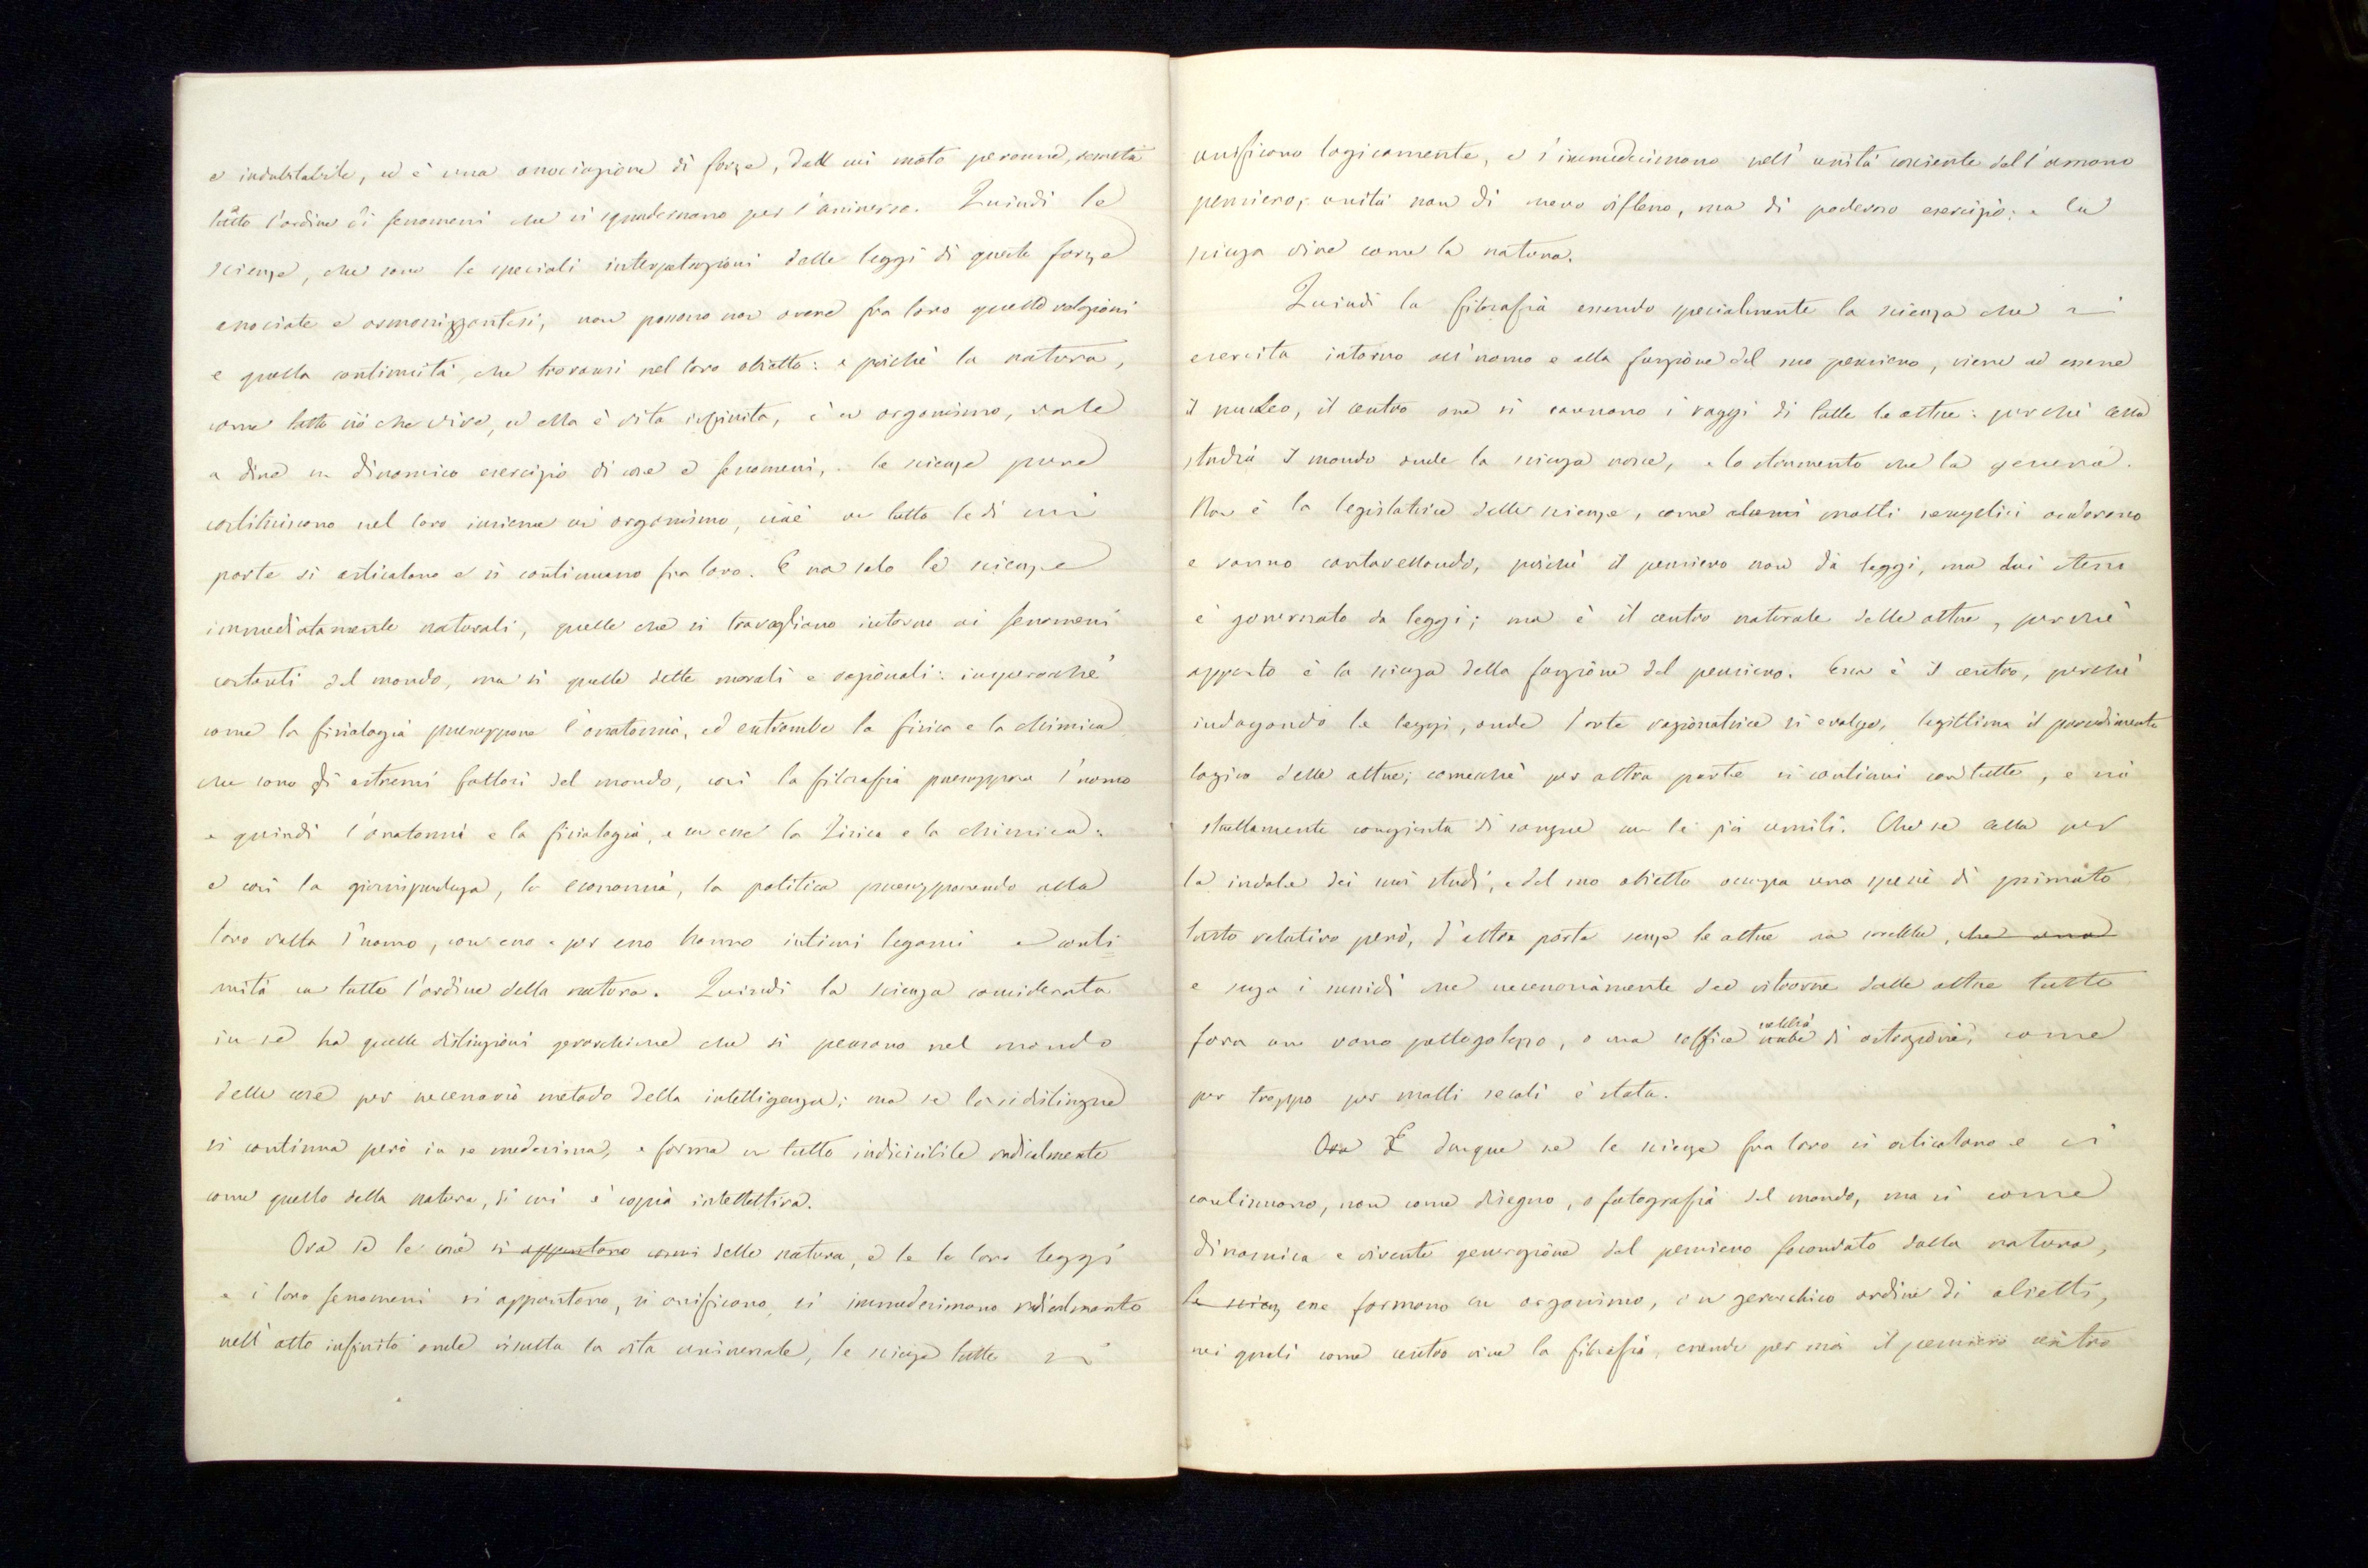 e indubitabile, ed è una associazione di forze, dall cui moto perenne, risulta
tutto l'ordine di fenomeni che si squadernano per l'universo. Quindi le
scienze, che sono le speciali interpetrazioni delle leggi di queste forze
associate e armonizzantesi, non possono non avere fra loro quelle relazioni
e quella continuità, che trovansi nel loro obietto: e poichè la natura,
come tutto ciò che vive, ed ella è vita infinita, è un organismo, vale
a dire un dinamico esercizio di cose e fenomeni, le scienze pure
costituiscono nel loro insieme un organismo, cioè un tutto le di cui
parte si articolano e si continuano fra loro. E non solo le scienze
immediatamente naturali, quelle che si travagliano intorno ai fenomeni
costanti del mondo, ma sì quelle dette morali e razionali: imperocchè
come la fisiologia presuppone l'anatomia, ed entrambe la fisica e la chimica
che sono gli estremi fattori del mondo, così la filosofia presuppone l'uomo
e quindi l'anatomia e la fisiologia, e con esse la fisica e la chimica:
e così la giurisprudenza, la economia, la politica presupponendo alla
loro volta l'uomo, con esso e per esso hanno intimi legami e conti
nuità con tutto l'ordine della natura. Quindi la scienza considerata
in sè ha quelle distinzioni gerarchiche che si pensano nel mondo
delle cose per necessario metodo della intelligenza; ma se la si distingue
si continua però in se medesima, e forma un tutto indivisibile radicalmente
come quello della natura, di cui è copia intellettiva.
Ora se le cose si appuntano della natura, e le loro leggi
e i loro fenomeni si appuntano, si unificano, si immedesimano radicalmente
nell'atto infinito onde risulta la vita universale, le scienze tutte si
unificano logicamente, e s'immedesimano nell'unità cosciente dell'umano
pensiero; unità non di mero riflesso, ma di poderoso esercizio: e la
scienza vive come la natura.
Quindi la filosofia essendo specialmente la scienza che si
esercita intorno all'uomo e alla funzione del suo pensiero, viene ad essere
il nucleo, il centro ove si  i raggi di tutte le altre: perchè ella
studia il mondo onde la scienza nasce, e lo strumento che la genera.
Non è la legislatrice delle scienze, come alcuni molti semplici credevano
e vanno contando, poichè il pensiero non dà leggi, ma lui stesso
è governato da leggi; ma è il centro naturale delle altre, perchè
appunto è la scienza della funzione del pensiero. Essa è il centro, perchè
indagando le leggi, onde l'arte razionatrice si svolge, legittima il procedimento
logico delle altre; comecchè per altra parte si continui con tutte, e sia
strettamente congiunta di sangue con le più umili. Che se ella per
la indole dei suoi studi, e del suo obietto occupa una specie di primato
tutto relativo però, d'altra parte senza le altre non sarebbe, che una
e senza i sussidi che necessariamente dee ritrarre dalle altre tutte
fora un vano pettegolezzo, o una soffice nube di astrazioni, come
per troppo per molti secoli è stata.
Ora E dunque se le scienze fra loro si articolano e si
continuano, non come disegno, o fotografia del mondo, ma sì come
dinamica e vivente generazione del pensiero fecondato dalla natura,
le scienz esse formano un organismo, e un gerarchico ordine di obietti,
nei quali come centro vive la filosofia, essendo per noi il pensiero centro